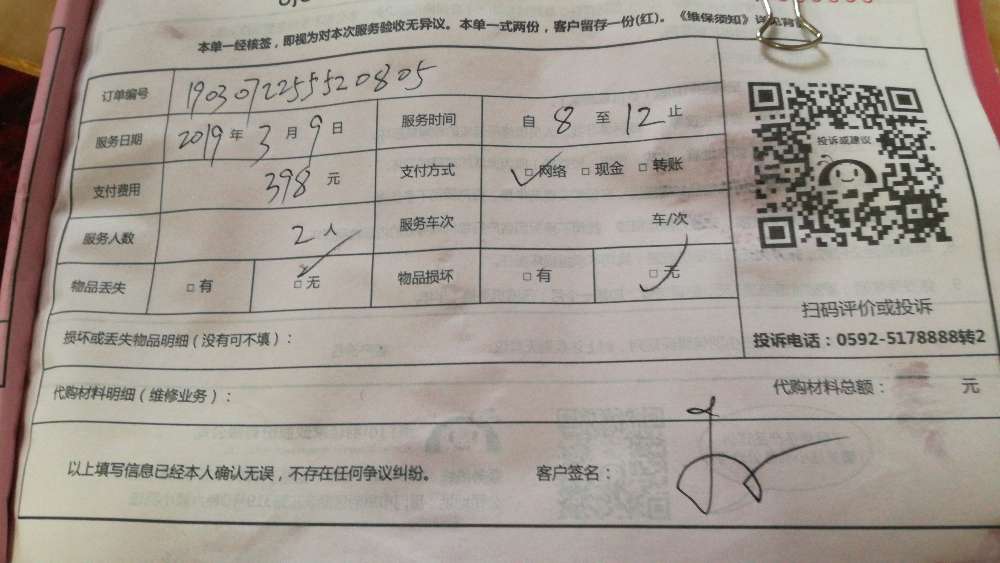 本单一经核签，即视为对本次服务验收无异议。本单一式两份，客户留存一份(红)。《维保须知》详见背
订单编号 1903072255520805
服务日期 2019 年 3 月 9 日 服务时间 自 8 至 12 止
支付费用 398 元 支付方式 □ 网络 □ 现金 □ 转账
服务人数 2人 服务车次 车/次
物品丢失 □ 有 □ 无 物品损坏 □ 有 □ 无
投诉或建议
扫码评价或投诉
投诉电话：0592-5178888转2
损坏或丢失物品明细（没有可不填）：
代购材料明细（维修业务）： 代购材料总额： 元
以上填写信息已经本人确认无误，不存在任何争议纠纷。 客户签名：